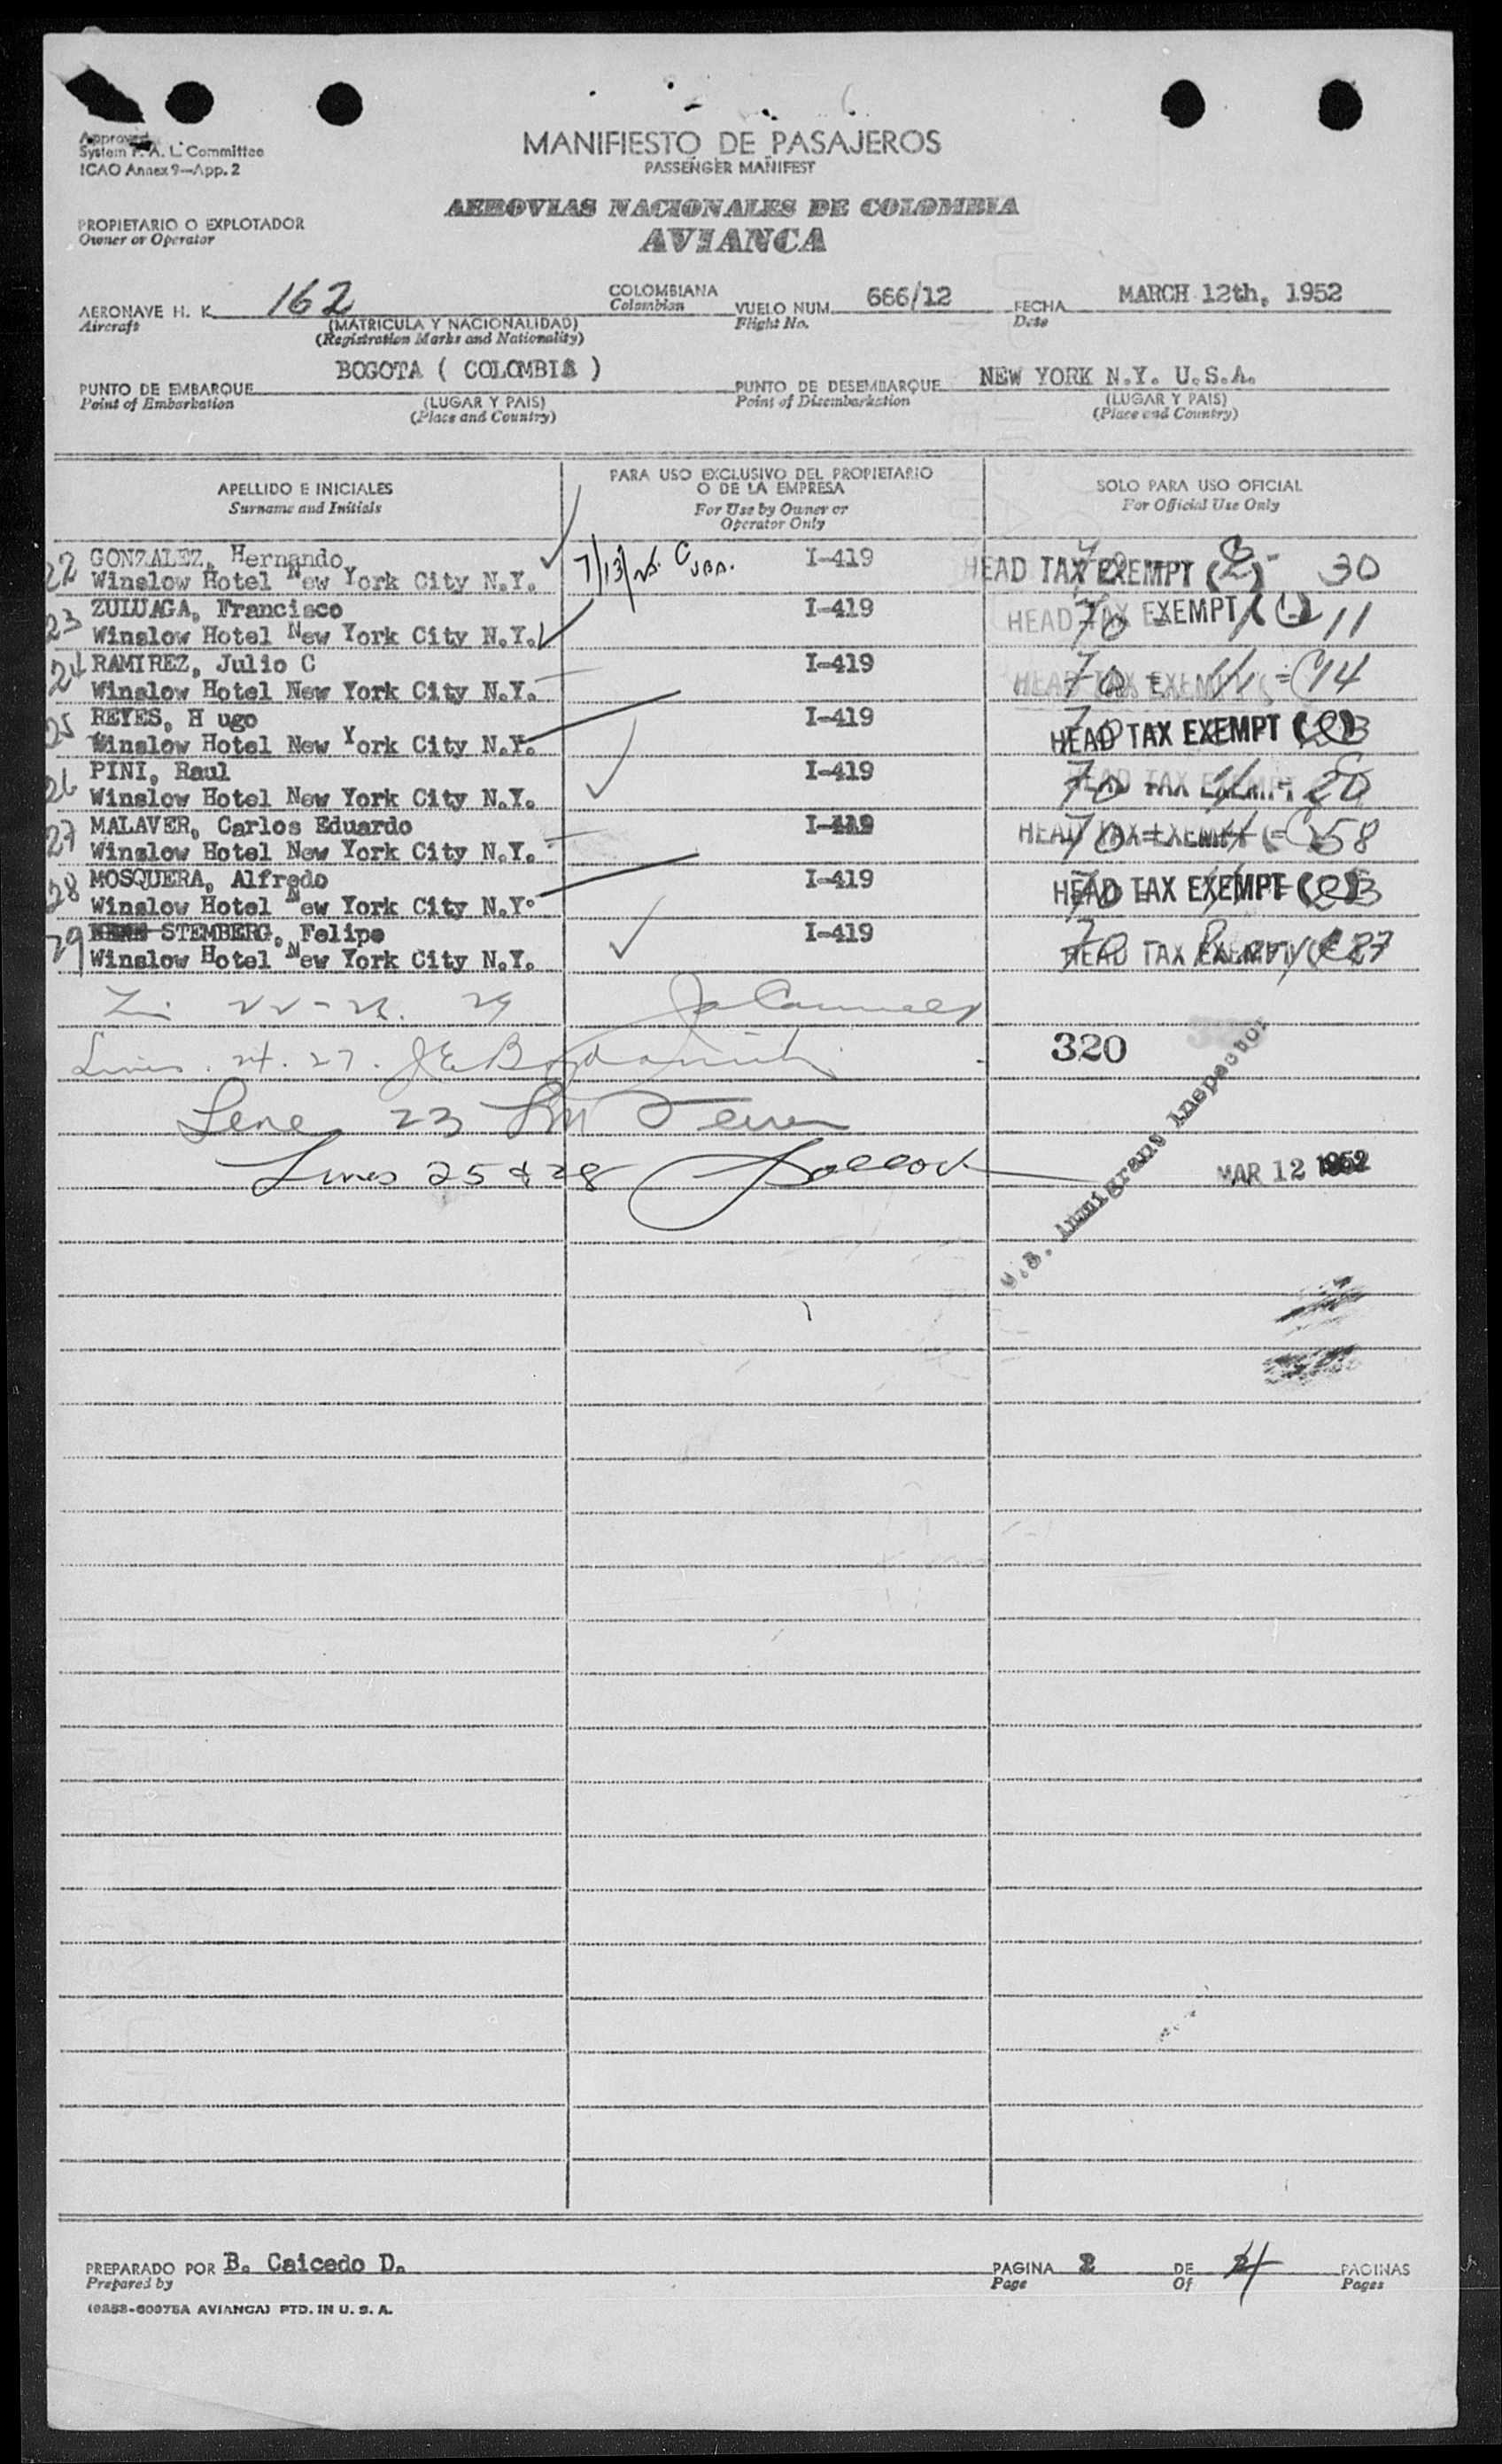 Approved
System F. A. L. Committee
ICAO Annex 9—App. 2
MANIFIESTO DE PASAJEROS
PASSENGER MANIFEST
PROPIETARIO O EXPLOTADOR
Owner or Operator
AEROVIAS NACIONALES DE COLOMBIA
AVIANCA
AERONAVE H. K. 162 COLOMBIANA VUELO NUM. 666/12 FECHA MARCH 12th, 1952
Aircraft (MATRICULA Y NACIONALIDAD) Colombian Flight No. Date
(Registration Marks and Nationality)
PUNTO DE EMBARQUE BOGOTA ( COLOMBIA ) PUNTO DE DESEMBARQUE NEW YORK N.Y. U.S.A.
Point of Embarkation (LUGAR Y PAIS) Point of Disembarkation (LUGAR Y PAIS)
(Place and Country) (Place and Country)
APELLIDO E INICIALES PARA USO EXCLUSIVO DEL PROPIETARIO O DE LA EMPRESA SOLO PARA USO OFICIAL
Surname and Initials For Use by Owner or Operator Only For Official Use Only
22 GONZALEZ, Hernando I-419 HEAD TAX EXEMPT 30
Winslow Hotel New York City N.Y.
23 ZULUAGA, Francisco I-419 HEAD TAX EXEMPT 11
Winslow Hotel New York City N.Y.
24 RAMIREZ, Julio C I-419 HEAD TAX EXEMPT 14
Winslow Hotel New York City N.Y.
25 REYES, H ugo I-419 HEAD TAX EXEMPT
Winslow Hotel New York City N.Y.
26 PINI, Raul I-419 HEAD TAX EXEMPT
Winslow Hotel New York City N.Y.
27 MALAVER, Carlos Eduardo I-419 HEAD TAX EXEMPT 58
Winslow Hotel New York City N.Y.
28 MOSQUERA, Alfredo I-419 HEAD TAX EXEMPT
Winslow Hotel New York City N.Y.
29 STEMBERG, Felipe I-419 HEAD TAX EXEMPT 27
Winslow Hotel New York City N.Y.
320
Lines 24. 27.
Line 23
Lines 25 & 28
U.S. Immigrant Inspector
MAR 12 1952
PREPARADO POR B. Caicedo D. PAGINA 2 DE 4 PAGINAS
Prepared by Page Of Pages
AVIANCA) PTD. IN U. S. A.